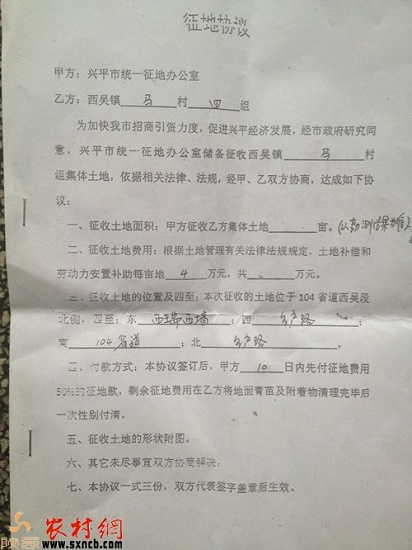 征地协议
甲方：兴平市统一征地办公室
乙方：西吴镇 马 村 四 组
为加快我市招商引资力度，促进兴平经济发展，经市政府研究同
意，兴平市统一征地办公室储备征收西吴镇 马 村
组集体土地，依据相关法律、法规，经甲、乙双方协商，达成如下协
议：
一、征收土地面积：甲方征收乙方集体土地 亩。(以勘测
二、征收土地费用：根据土地管理有关法律法规规定，土地补偿和
劳动力安置补助每亩地 4 万元，共 万元。
三、征收土地的位置及四至：本次征收的土地位于 104 省道西吴段
北侧，四至：东 西瑞西墙 ；西 生产路 ；
南 104省道 ；北 生产路 。
四、付款方式：本协议签订后，甲方 10 日内先付征地费用
50%的征地款，剩余征地费用在乙方将地面青苗及附着物清理完毕后
一次性付清。
五、征收土地的形状附图。
六、其它未尽事宜双方协商解决。
七、本协议一式三份，双方代表签字盖章后生效。
农村網
www.sxncb.com